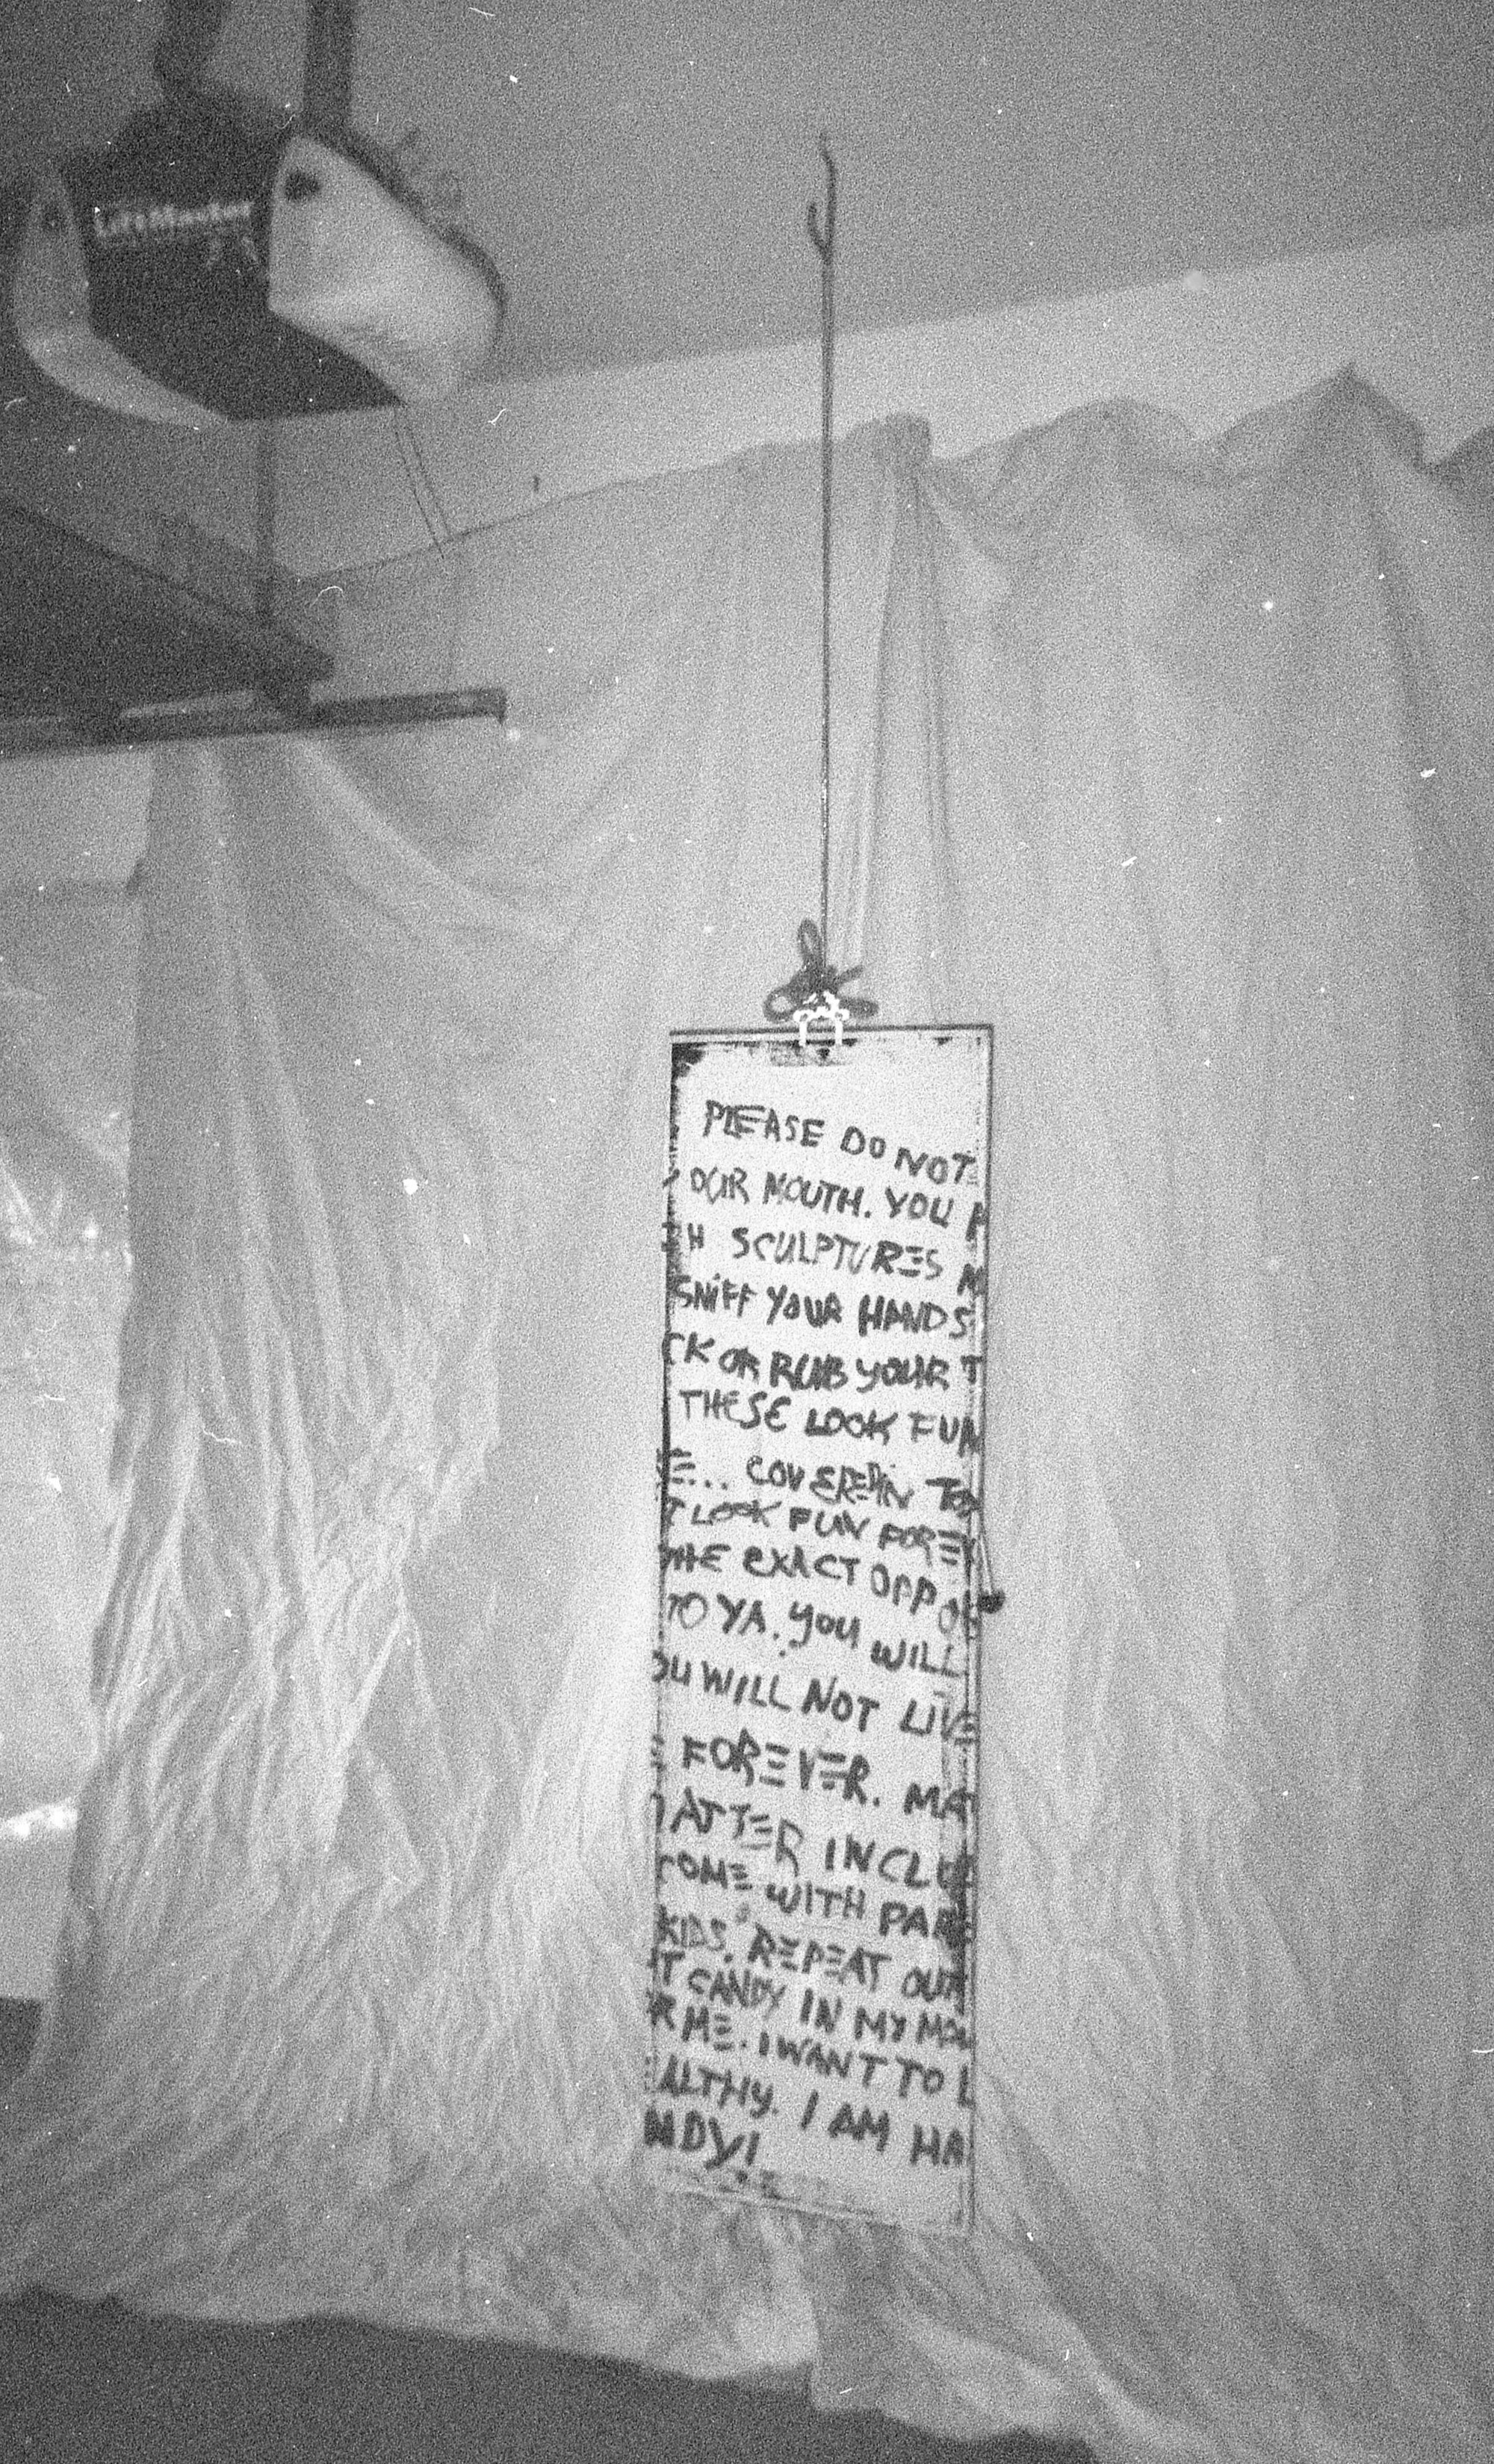 LiftMaster
PLEASE DO NOT
OUR MOUTH. YOU
H SCULPTURES M
SNIFF YOUR HANDS
CK OR RUB YOUR T
THESE LOOK FUN
E... COVERED IN TO
T LOOK FUN FOREV
THE EXACT OPPO
TO YA. YOU WILL
OU WILL NOT LIVE
E FOREVER. MAT
ATTER INCLU
COME WITH PAR
KIDS. REPEAT OUT
T CANDY IN MY MOU
R ME. I WANT TO L
EALTHY. I AM HA
NDY!